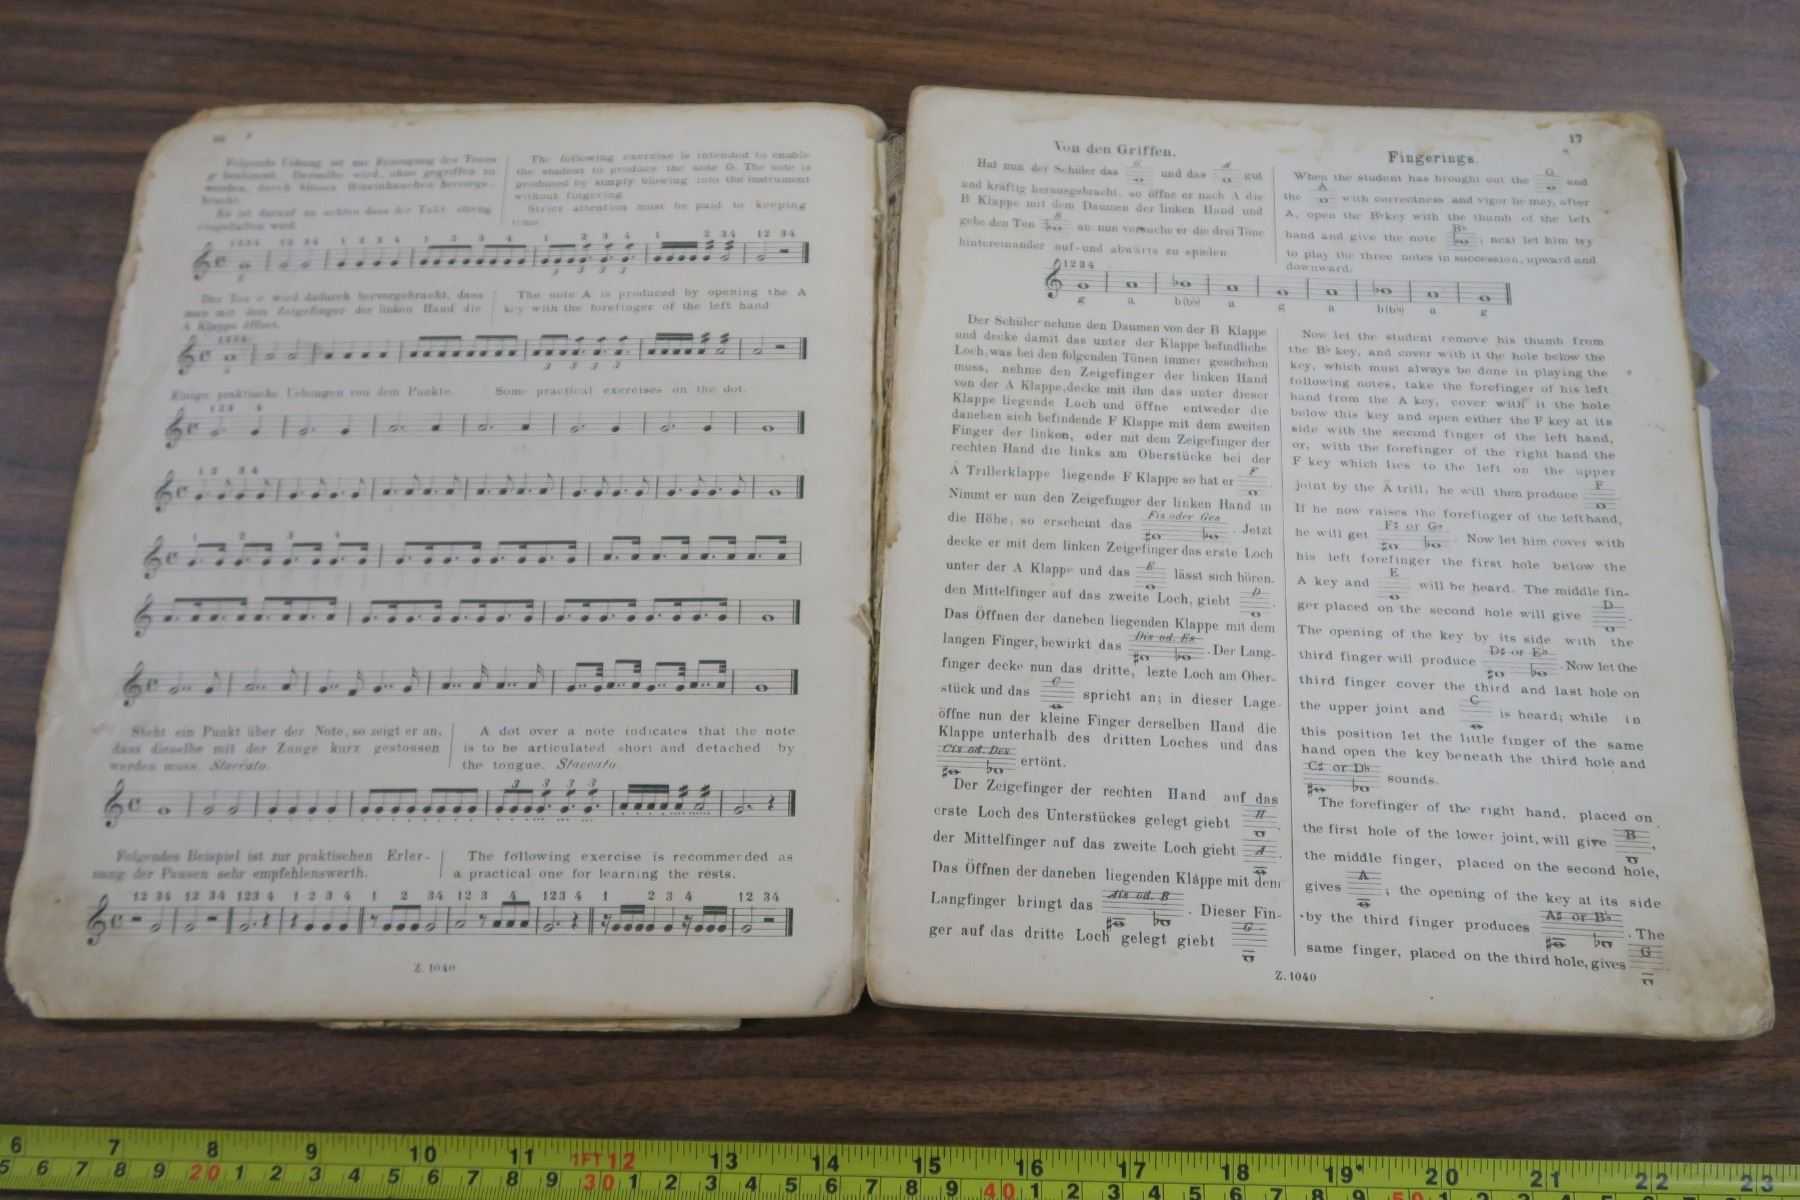 Folgende Uebung ist zur Erzeugung des Tones
g bestimmt. Derselbe wird, ohne gegriffen zu
werden, durch blosses Hineinhauchen hervorge-
bracht.
Es ist darauf zu achten dass der Takt streng
eingehalten wird.
The following exercise is intended to enable
the student to produce the note G. The note is
produced by simply blowing into the instrument
without fingering.
Strict attention must be paid to keeping
time.
1234 12 34 1 2 3 4 1 2 3 4 1 2 3 4 1 2 34 12 34
g
3 3 3 3
Der Ton a wird dadurch hervorgebracht, dass
man mit dem Zeigefinger der linken Hand die
A Klappe öffnet.
The note A is produced by opening the A
key with the forefinger of the left hand
1234
3 3 3 3
Einige praktische Uebungen von dem Punkte.
Some practical exercises on the dot.
123 4
1 2 3 4
1 2 3 4
Steht ein Punkt über der Note, so zeigt er an,
dass dieselbe mit der Zunge kurz gestossen
werden muss. Staccato.
A dot over a note indicates that the note
is to be articulated short and detached by
the tongue. Staccato.
3 3 3 3
Folgendes Beispiel ist zur praktischen Erler-
nung der Pausen sehr empfehlenswerth.
The following exercise is recommerded as
a practical one for learning the rests.
12 34 12 34 123 4 1 2 3 4 1 2 34 12 3 4 123 4 1 2 3 4 12 34
Z. 1040
17
Von den Griffen.
Hat nun der Schüler das G und das A gut
und kräftig herausgebracht, so öffne er nach A die
B Klappe mit dem Daumen der linken Hand und
gebe den Ton B an: nun versuche er die drei Töne
hintereinander auf-und abwärts zu spielen:
Fingerings.
When the student has brought out the G and
the A with correctness and vigor he may, after
A, open the B♭ key with the thumb of the left
hand and give the note B♭; next let him try
to play the three notes in succession, upward and
downward:
1234
g a b(b♭) a g a b(b♭) a g
Der Schüler nehme den Daumen von der B Klappe
und decke damit das unter der Klappe befindliche
Loch, was bei den folgenden Tönen immer geschehen
muss, nehme den Zeigefinger der linken Hand
von der A Klappe, decke mit ihm das unter dieser
Klappe liegende Loch und öffne entweder die
daneben sich befindende F Klappe mit dem zweiten
Finger der linken, oder mit dem Zeigefinger der
rechten Hand die links am Oberstücke bei der
A Trillerklappe liegende F Klappe so hat er F.
Nimmt er nun den Zeigefinger der linken Hand in
die Höhe, so erscheint das Fis oder Ges. Jetzt
decke er mit dem linken Zeigefinger das erste Loch
unter der A Klappe und das E lässt sich hören.
den Mittelfinger auf das zweite Loch, giebt D.
Das Öffnen der daneben liegenden Klappe mit dem
langen Finger, bewirkt das Dis od. Es. Der Lang-
finger decke nun das dritte, lezte Loch am Ober-
stück und das C spricht an; in dieser Lage
öffne nun der kleine Finger derselben Hand die
Klappe unterhalb des dritten Loches und das
Cis od. Des ertönt.
Der Zeigefinger der rechten Hand auf das
erste Loch des Unterstückes gelegt giebt H
der Mittelfinger auf das zweite Loch giebt A.
Das Öffnen der daneben liegenden Klappe mit dem
Langfinger bringt das Ais od. B. Dieser Fin-
ger auf das dritte Loch gelegt giebt G
Now let the student remove his thumb from
the B♭ key, and cover with it the hole below the
key, which must always be done in playing the
following notes, take the forefinger of his left
hand from the A key, cover with it the hole
below this key and open either the F key at its
side with the second finger of the left hand,
or, with the forefinger of the right hand the
F key which lies to the left on the upper
joint by the A trill, he will then produce F.
If he now raises the forefinger of the left hand,
he will get F♯ or G♭. Now let him cover with
his left forefinger the first hole below the
A key and E will be heard. The middle fin-
ger placed on the second hole will give D.
The opening of the key by its side with the
third finger will produce D♯ or E♭. Now let the
third finger cover the third and last hole on
the upper joint and C is heard; while in
this position let the little finger of the same
hand open the key beneath the third hole and
C♯ or D♭ sounds.
The forefinger of the right hand, placed on
the first hole of the lower joint, will give B,
the middle finger, placed on the second hole,
gives A; the opening of the key at its side
by the third finger produces A♯ or B♭. The
same finger, placed on the third hole, gives G
Z. 1040
6 7 8 9 10 11 1FT 12 13 14 15 16 17 18 19 20 21 22 23
5 6 7 8 9 20 1 2 3 4 5 6 7 8 9 30 1 2 3 4 5 6 7 8 9 40 1 2 3 4 5 6 7 8 9 50 1 2 3 4 5 6 7 8